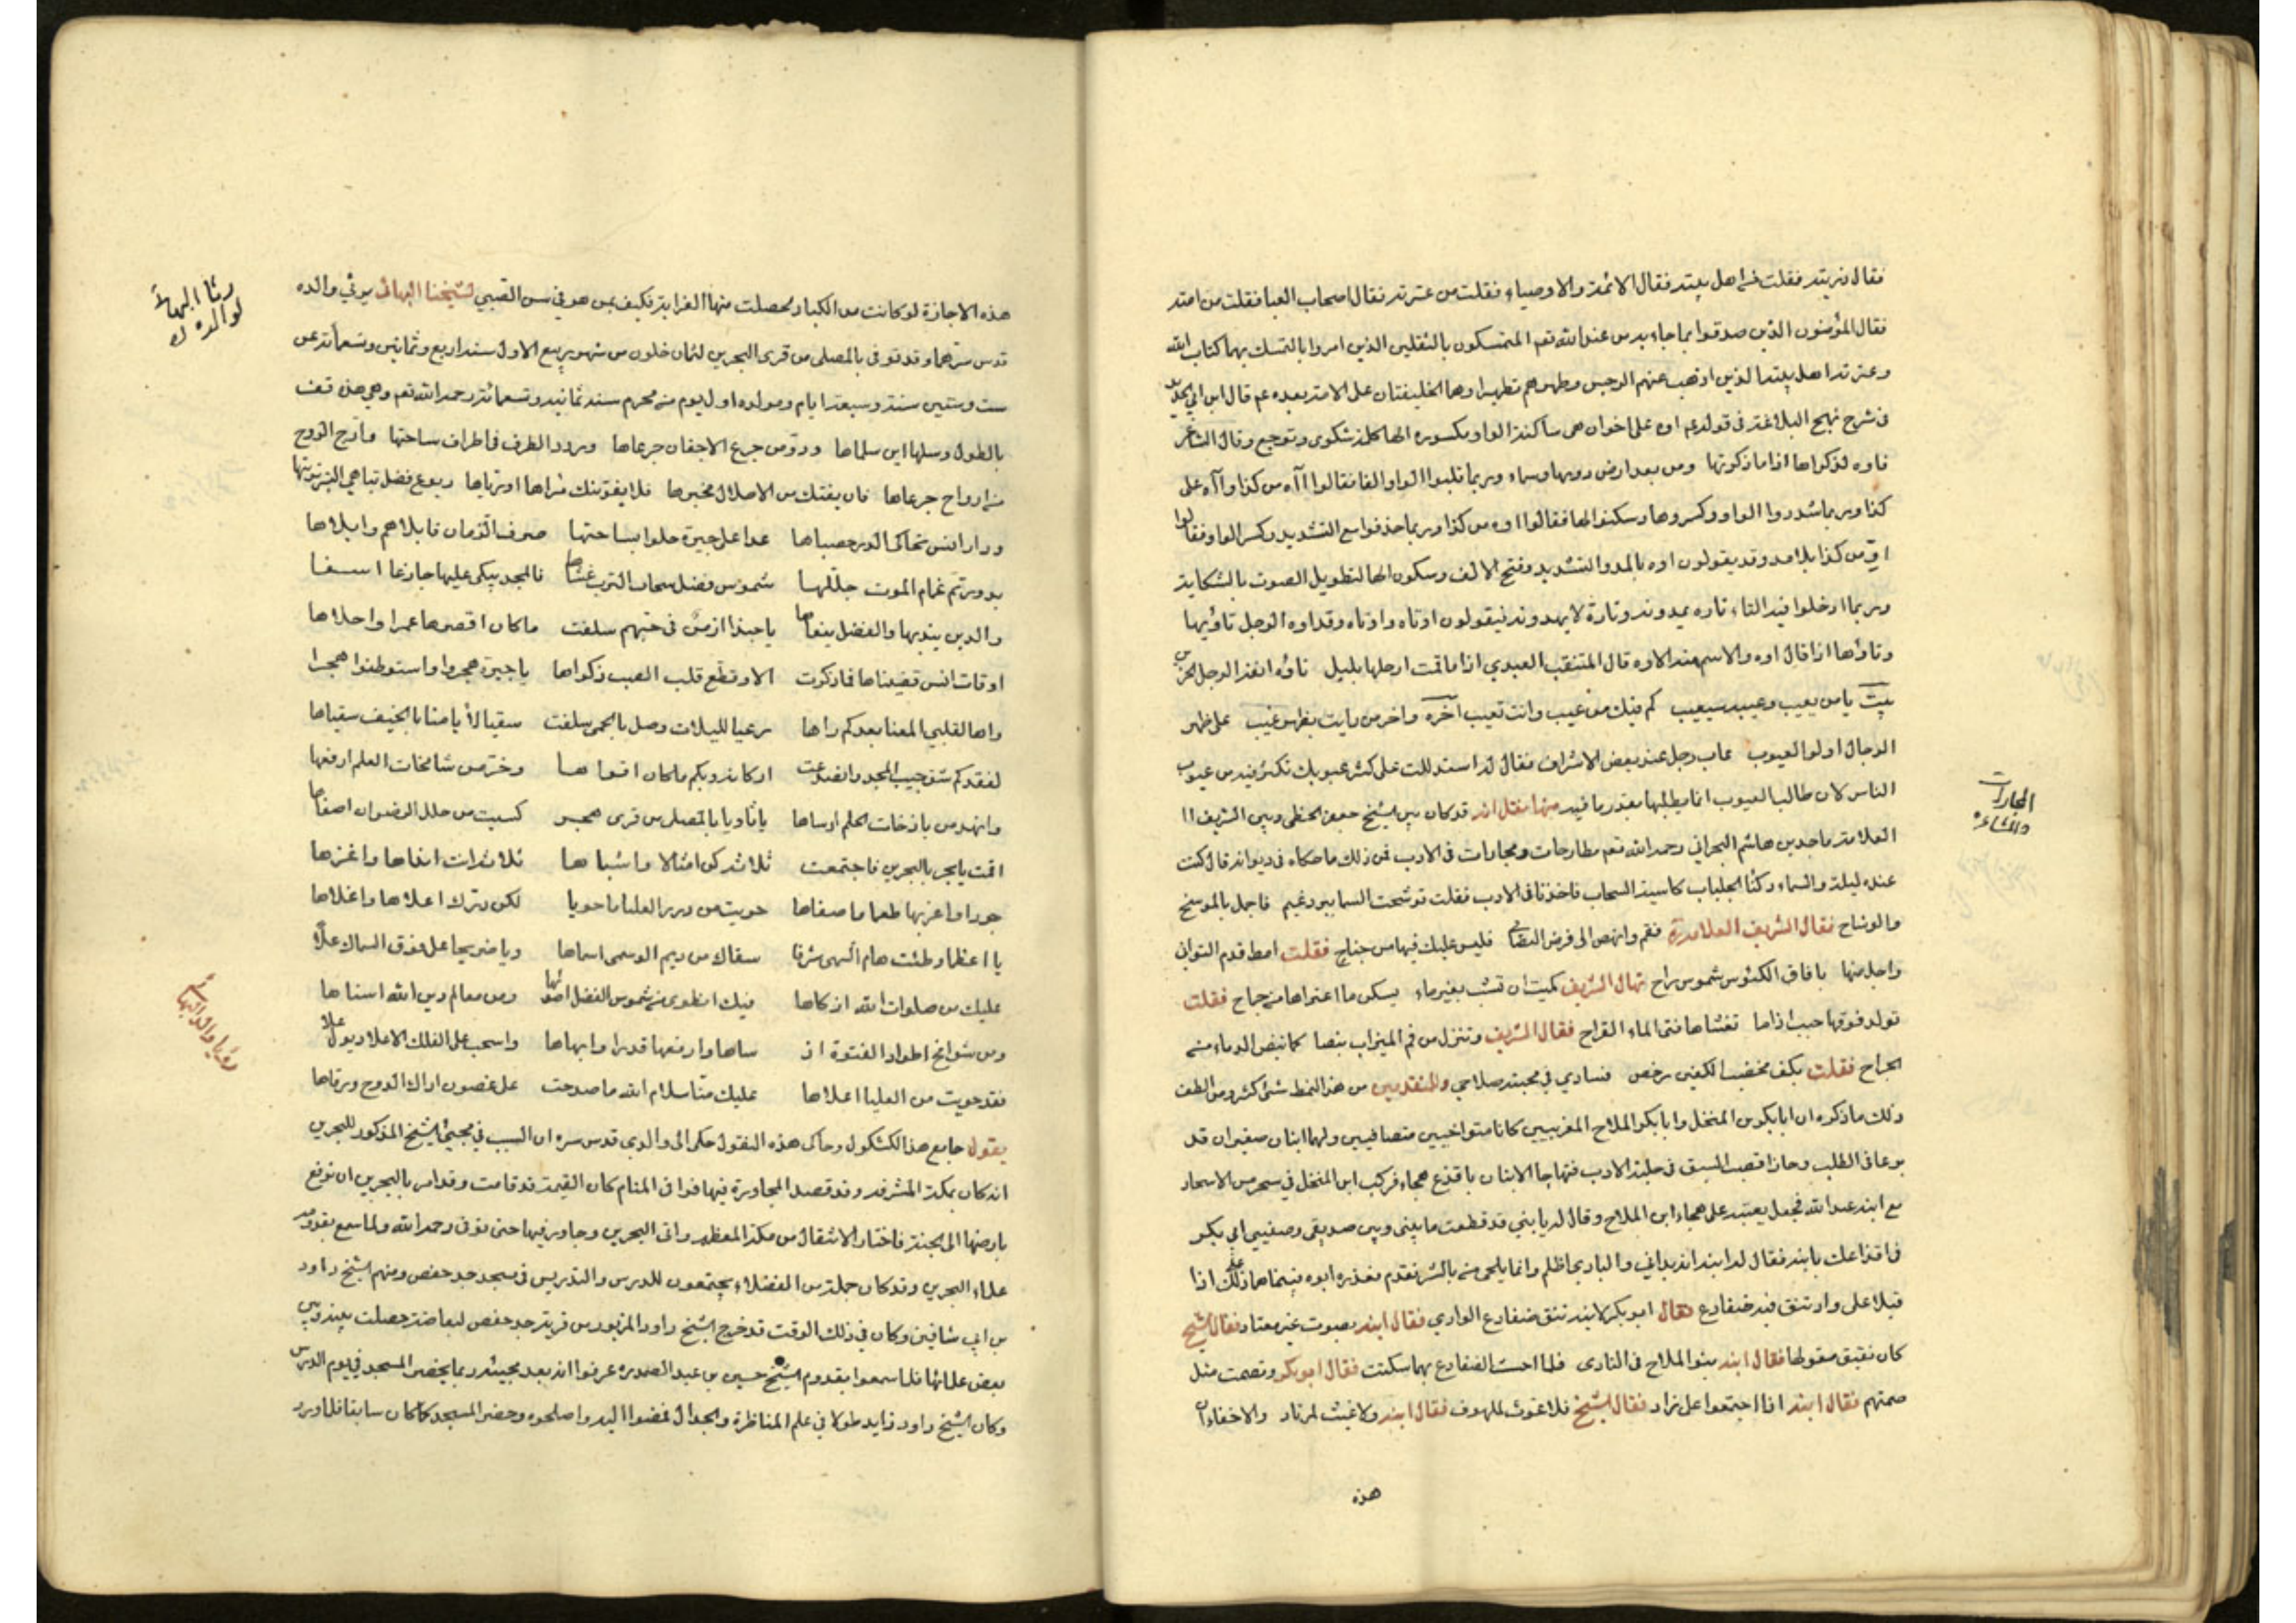 فقال ذريته فقلت من اهل بيته فقال الائمة والاوصياء فقلت من عترته فقال اصحاب العبا فقلت من امته
فقال المؤمنون الذين صدقوا بما جاء به من عند الله تعم المتمسكون بالثقلين الذين امروا بالتمسك بهما كتاب الله
وعترته اهل بيته الذين اذهب عنهم الرجس وطهرهم تطهيرا وهما الخليفتان على الامة بعده عم قال ابن ابي الحديد
في شرح نهج البلاغة في قوله عم اوه على اخوان هي ساكنة الواو مكسورة الها كلمة شكوى وتوجع وقال الشاعر
فاوه لذكراها اذا ما ذكرتها ومن بعد ارض دونها وسماء وربما قلبوا الواو الفا فقالوا آه من كذا وآه على
كذا وربما شددوا الواو وكسروها وسكنوا الها فقالوا اوه من كذا وربما حذفوا مع التشديد وكسر الواو فقالوا
او من كذا بلا مد وقد يقولون اوه بالمد والتشديد وفتح الالف وسكون الها لتطويل الصوت بالشكاية
وربما ادخلوا فيه التاء تاره يمدونه وتارة لا يمدونه فيقولون اوتاه واوتاه وقد اوه الرجل تاويها
وتاوّها اذا قال اوه والاسم منه الاوه قال المثقب العبدي اذا ما قمت ارحلها بليل تاوّه اهة الرجل الحزين
بيت يا من يعيب وعيبه سيعيب كم فيك من عيب وانت تعيب آخره واخر من رايت بظهر غيب على ظهر
الرجال اولوا العيوب عاب رجل عند بعض الاشراف فقال له استدللت على كثرة عيوبك تكثر فيه من عيوب
الناس لان طالب العيوب انما يطلبها بقدر ما فيه منها نقل انه قد كان بين الشيخ جعفر الخطي وبين الشريف ا
العلامة ماجد بن هاشم البحراني رحمه الله تعم مطارحات ومجارات في الادب فمن ذلك ما حكاه في ديوانه قال كنت
عنده ليلة والسماء دكنا الجلباب كاسية السحاب فاخذنا في الادب فقلت توشحت السما ببرد غيم فاجمل بالموشح
والوشاح فقال الشريف العلامة فقم وانهض الى فرض التصابي فليس عليك فيها من جناح فقلت امط قدم التواني
واجل منها بافاق الكئوس شموس راح فقال الشريف كميت ان تشب بغير ماء يسكن ما اعتراها من جماح فقلت
تولد فوقها حببا اذا ما تغشاها فتى الماء القراح فقال الشريف وتنزل من فم الميزاب نبضا كما نبض الدماء من
الجراح فقلت بكف مخضب الكفين رخص فسادي في محبته صلاحي وللمتقدمين من هذا النمط شئ كثير ومن الطف
ذلك ما ذكره ان ابا بكر بن المنخل وابا بكر الملاح المغربيين كانا متواخيين متصافيين ولهما ابنان صغيران قد
برعا في الطلب وحازا قصب السبق في حلبة الادب فتهاجا الابنان باقذع هجاء فركب ابن المنخل في سحر من الاسحار
مع ابنه عبد الله فجعل يعتبه على هجاء ابن الملاح وقال له يا بني قد قطعت ما بيني وبين صديقي وصفيي ابي بكر
في اقذاعك بابنه فقال له ابنه انه بداني والبادي اظلم وانما يلحى من بالشر تقدم فعذره ابوه فبينما هما على ذلك اذا
قبلا على واد تنق فيه ضفادع فقال ابو بكر لابنه تنق ضفادع الوادي فقال ابنه بصوت غير معتاد فقال الشيخ
كان نقيق مقولها فقال ابنه بنو الملاح في النادي فلما احست الضفادع بهما سكتت فقال ابو بكر وتصمت مثل
صمتهم فقال ابنه اذا اجتمعوا على زاد فقال الشيخ فلا غوث لملهوف فقال ابنه ولا غيث لمرتاد والاخفاء ان
هذه
المجارات
والمشاعره
هذه الاجازة لو كانت من الكبار لحصلت منها الغرابة فكيف بمن هو في سن الصبي لشيخنا البهائي يرثي والده
قدس سرهما وقد توفي بالمصلى من قرى البحرين لثمان خلون من شهر ربيع الاول سنة اربع وثمانين وتسعمائة عن
ست وستين سنة وسبعة ايام ومولده اول يوم من محرم سنة ثمانية وتسعمائة رحمه الله تعم وهي هذه قف
بالطلول وسلها اين سلماها وروّ من جرع الاجفان جرعاها وردد الطرف في اطراف ساحتها وارج الروح
من ارواح جرعاها فان يفتك من الاطلال مخبرها فلا يفوتنك مراها ورياها ربوع فضل تباهي التبر تربتها
ودار انس تحاكى الدر حصباها عدا على جيرة حلوا بساحتها صرف الزمان فابلاهم وابلاها
بدور تمّ غمام الموت جللها شموس فضل سحاب الترب غشاها فالمجد يبكى عليها جازعا اسفا
والدين يندبها والفضل ينعاها يا حبذا ازمن في حبهم سلفت ما كان اقصرها عمرا واحلاها
اوقات انس قضيناها فما ذكرت الا وقطّع قلب الصب ذكراها يا جيرة هجروا واستوطنوا هجرا
واها لقلبي المعنا بعدكم واها رعيا لليلات وصل بالحمى سلفت سقيا لأيامنا بالخيف سقياها
لفقدكم شق جيب المجد وانصدعت اركانه وبكم ما كان اقواها وخرّ من شامخات العلم ارفعها
وانهد من باذخات الحلم ارساها يا ثاويا بالمصلى من قرى هجر كسيت من حلل الرضوان اصفاها
اقمت يا بحر بالبحرين فاجتمعت ثلاثة كن امثالا واشباها ثلاثة انت انداها واغزرها
جودا واعذبها طعما وصفاها حويت من درر العليا ما حويا لكن درك اعلاها واغلاها
يا اعظما وطئت هام السهى شرفا سقاك من ديم الوسمى اسماها ويا ضريحا على فوق السماك علا
عليك من صلوات الله ازكاها فيك انطوى من شموس الفضل اضواها ومن معالم دين الله اسناها
ومن شوامخ اطواد الفتوة ارساها وارفعها قدرا وابهاها واسحب على الفلك الاعلا ذيول علا
فقد حويت من العليا اعلاها عليك منّا سلام الله ما صدحت على غصون اراك الدوح ورقاها
يقول جامع هذا الكشكول وحاكى هذه النقول حكى الى والدي قدس سره ان السبب في مجئ الشيخ المذكور للبحرين
انه كان بمكة المشرفه وقد قصد المجاورة فيها فراى في المنام كان القيمة قد قامت وقد امر بالبحرين ان ترفع
بارضها الى الجنة فاختار الانتقال من مكة المعظمه واتى البحرين وجاور فيها حتى توفى رحمه الله ولما سمع بقدومه
علماء البحرين وقد كان جملة من الفضلاء يجتمعون للدرس والتدريس في مسجد جد حفص ومنهم الشيخ داود
بن ابي شافين وكان في ذلك الوقت قد خرج الشيخ داود المزبور من قرية جد حفص لمعارضة حصلت بينه وبين
بعض علمائها فلما سمعوا بقدوم الشيخ حسين بن عبد الصمد ره عرفوا انه بعد مجيئه ربما يحضر المسجد في يوم الدرس
وكان الشيخ داود زايد طولا في علم المناظرة والجدال فمضوا اليه واصلحوه وحضر المسجد كما كان سابقا فلما ورد
رثا البهائي
لوالده ره
رؤيا والد البهائي